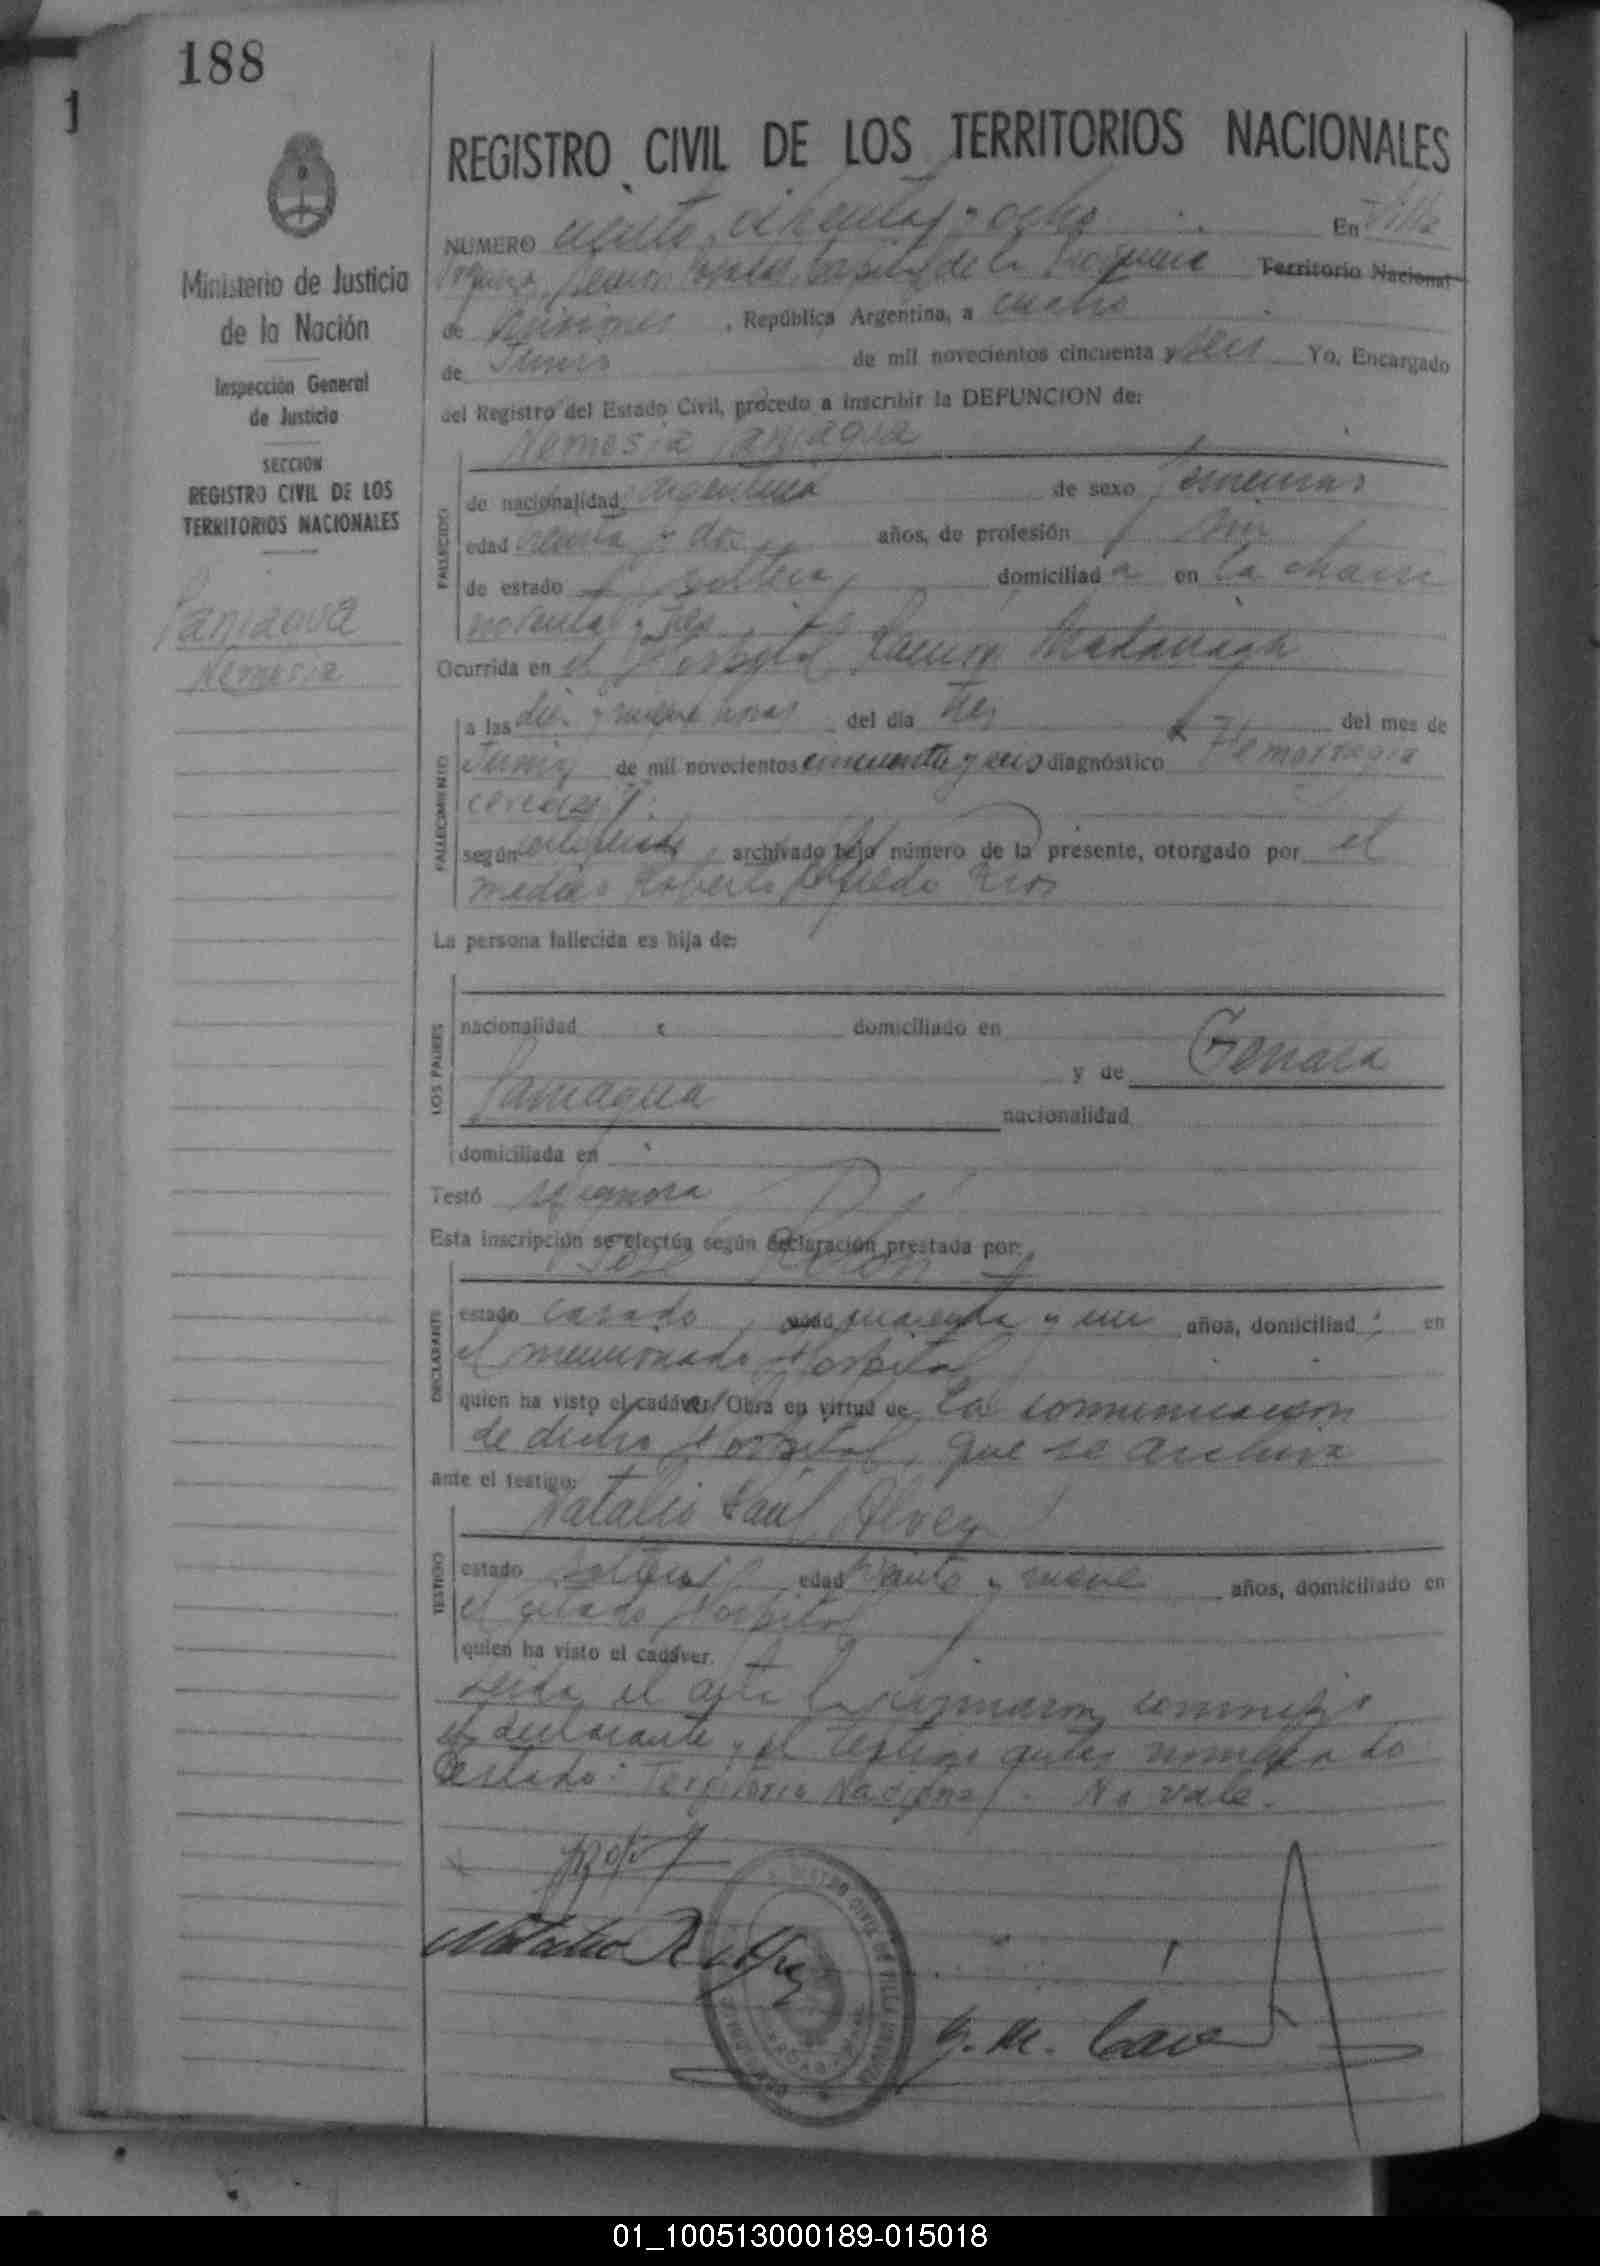 188
1
REGISTRO CIVIL DE LOS TERRITORIOS NACIONALES
Ministerio de Justicia
de la Nación
Inspección General
de Justicia
SECCION
REGISTRO CIVIL DE LOS
TERRITORIOS NACIONALES
Paniagua
Nemesia
NUMERO ciento ochenta y ocho En Villa
de la Territorio Nacional
de Misiones, República Argentina, a cuatro
de Junio de mil novecientos cincuenta y seis Yo, Encargado
del Registro del Estado Civil, procedo a inscribir la DEFUNCION de:
Nemesia Paniagua
FALLECIDO
de nacionalidad argentina de sexo femenino
edad treinta y dos años, de profesión
de estado soltera domiciliada en la chacra
noventa y tres
Ocurrida en el Hospital Ramón Madariaga
FALLECIMIENTO
a las diez y nueve horas del dia tres del mes de
Junio de mil novecientos cincuenta y seis diagnóstico Hemorragia
cerebral
según certificado archivado bajo número de la presente, otorgado por el
medico Roberto Alfredo Rios
La persona fallecida es hija de:
LOS PADRES
nacionalidad domiciliado en
y de Genara
Paniagua nacionalidad
domiciliada en
Testó se ignora
Esta inscripción se efectúa según declaración prestada por:
José Rolón
DECLARANTE
estado casado edad cuarenta y un años, domiciliad en
el mencionado Hospital
quien ha visto el cadáver. Obra en virtud de la comunicacion
de dicho Hospital, que se archiva
ante el testigo:
Natalio Raúl
TESTIGO
estado soltero edad y nueve años, domiciliado en
el citado Hospital
quien ha visto el cadáver.
Leida el acta la firmaron conmigo
el declarante y el testigo antes nombrado
Testado: Territorio Nacional. No vale.
01_100513000189-015018